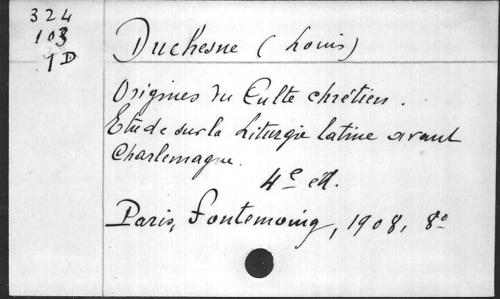 324
103
1D
Duchesne (Louis)
Origines du Culte chrétien.
Etude sur la Liturgie latine avant
Charlemagne.
4e éd.
Paris, Fontemoing, 1908, 8o